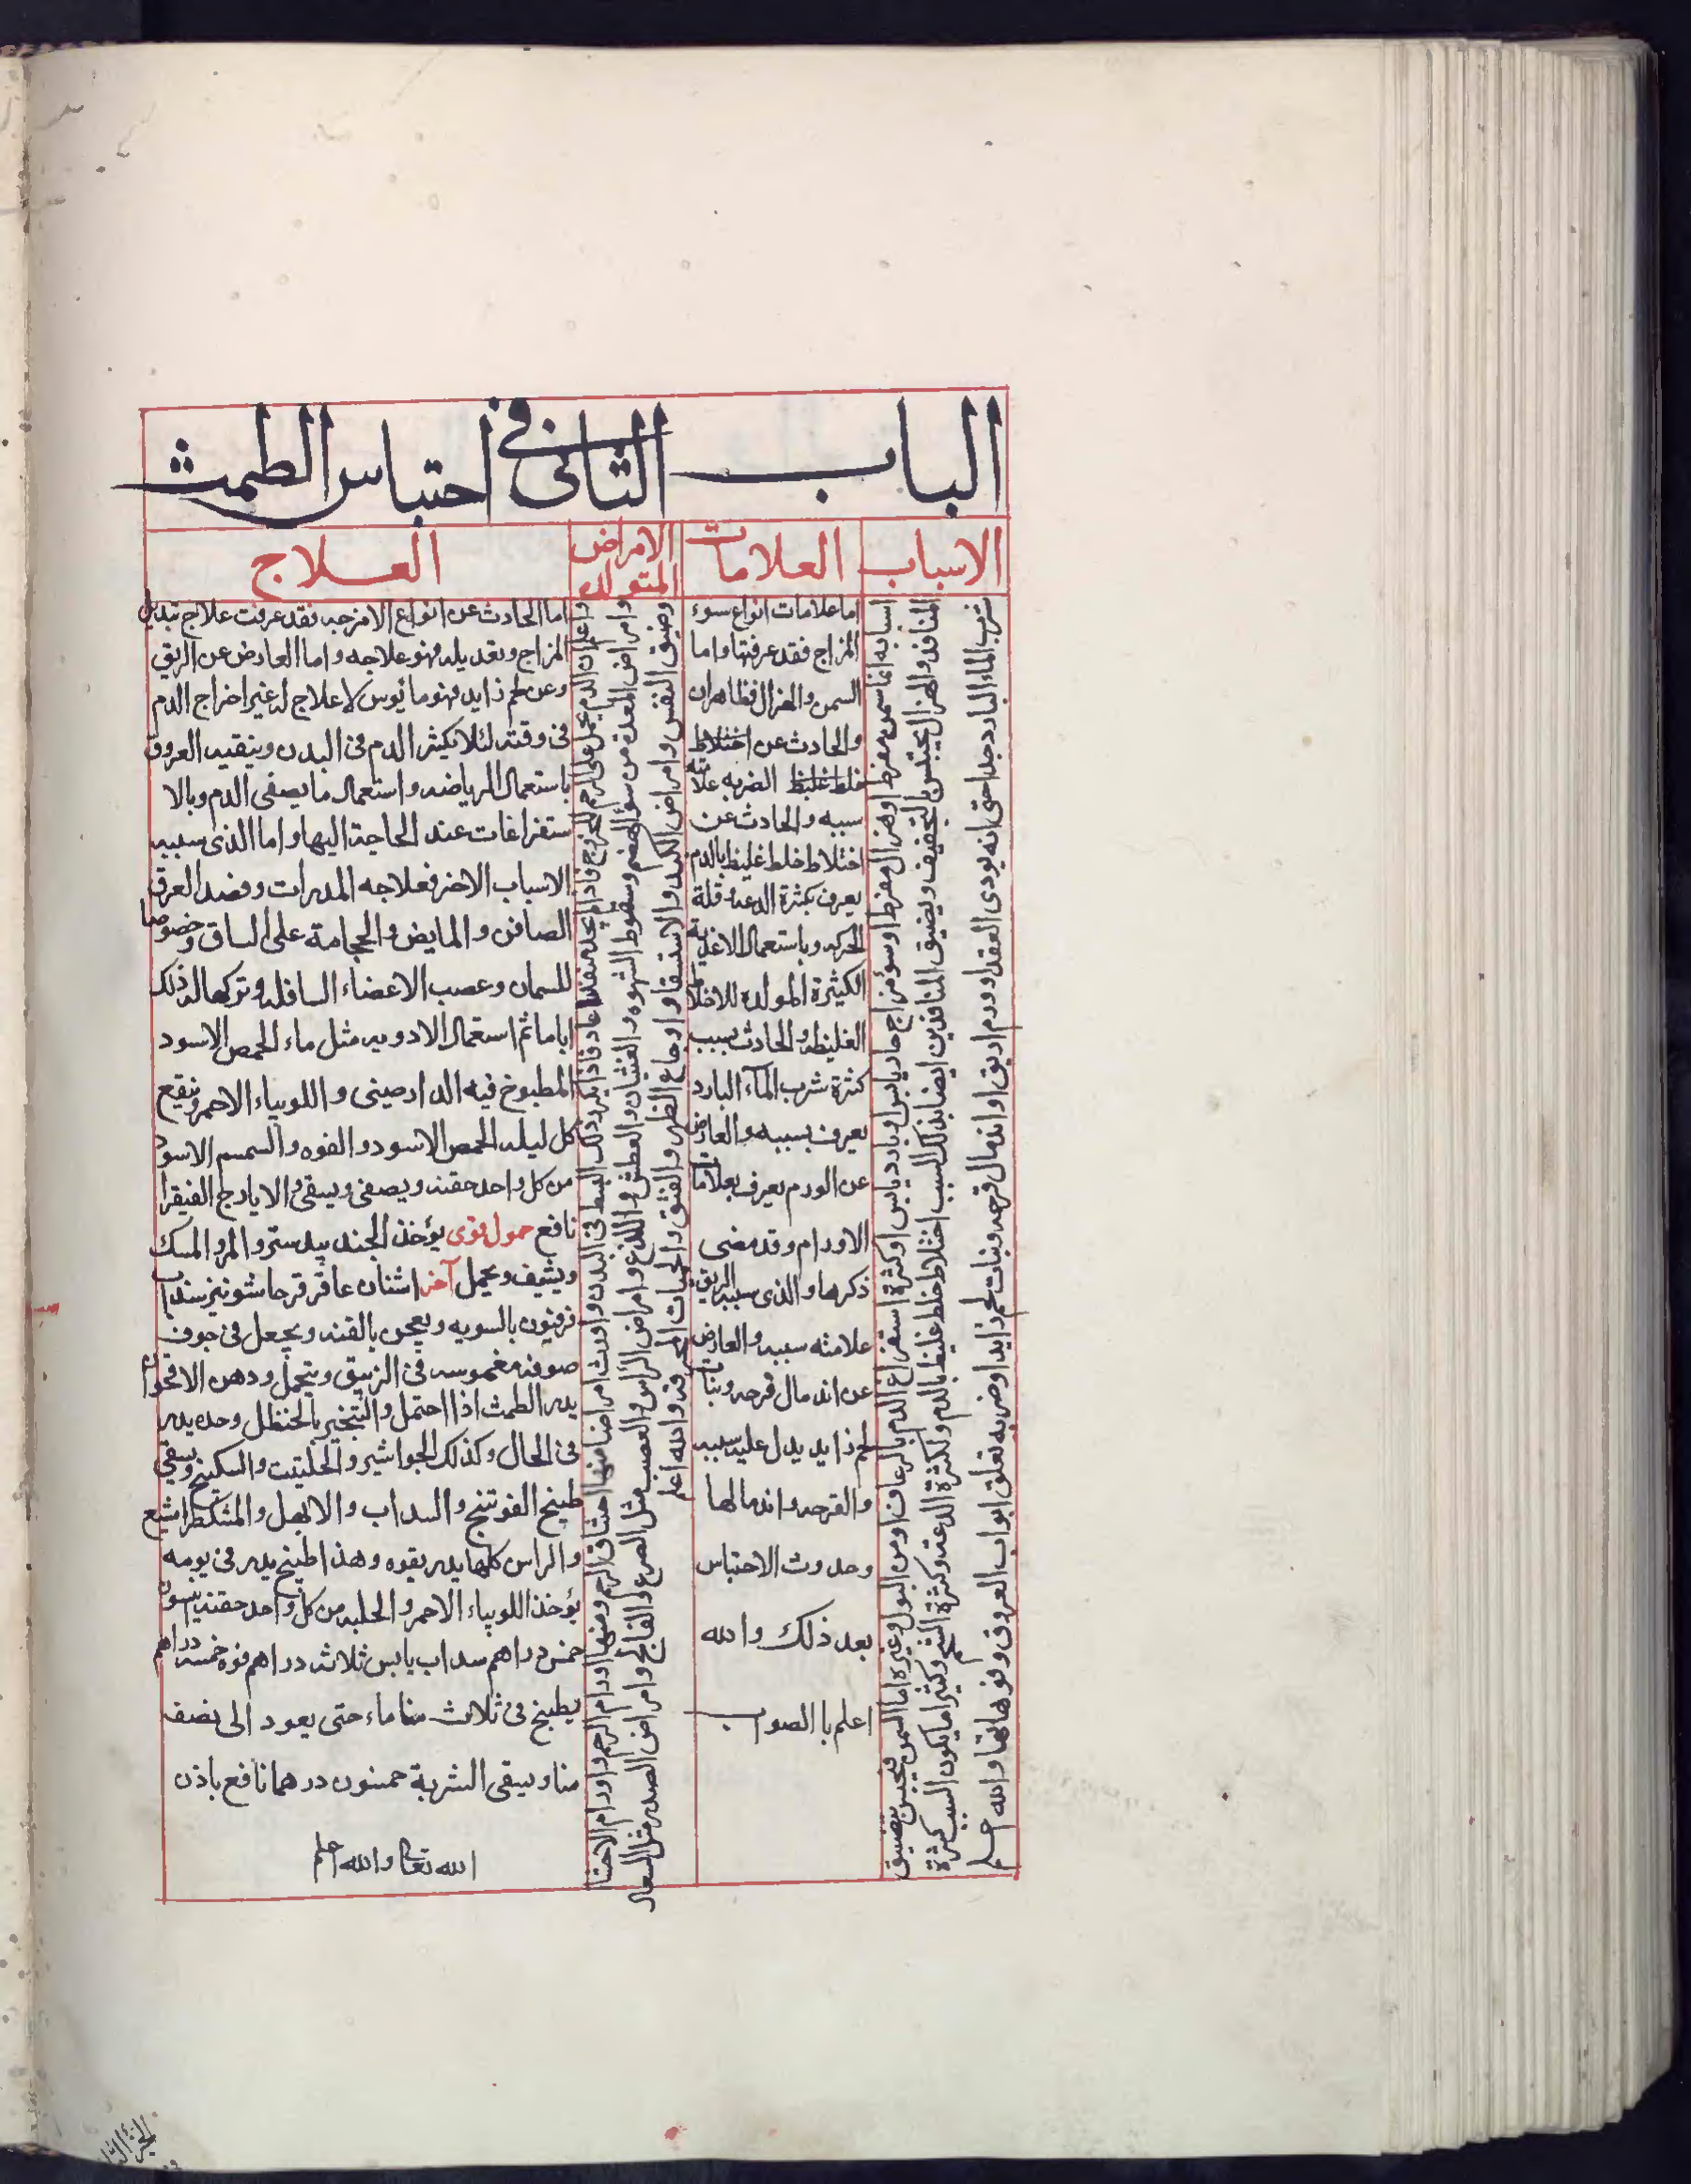 الباب الثانى فى احتباس الطمث
الاسباب
اسبابه اما سمن مفرط او هزال مفرط او سؤ مزاج حار يابس او بارد يابس او كثرة استفراغ الدم بالرعاف او من البول وغيره اما السمن فيحبس بتضييق
المنافذ والهزال يحتبس بالتجفيف ويضيق المنافذ بين ايضا بذلك السبب اختلاط خلط غليظ بالدم ولكثرة الدعة وكثرة الشحم وكثيرا ما يكون السبب كثرة
شرب الماء البارد جدا حتى انه يودى العقد او ورم او بق او اندمال قرحه ونبات لحم زايد او ضربه تغلق ابواب العروق وفوهاتها والله اعلم
العلامات
اما علامات انواع سوء
المزاج فقد عرفتها واما
السمن والهزال فظاهران
والحادث عن اختلاط
خلط غليظ الضربه علامته
سببه والحادث عن
اختلاط خلط غليظ بالدم
يعرف بكثرة الدعه وقلة
الحركه وباستعمال الاغذية
الكثيرة المولده للاخلاط
الغليظه والحادث بسبب
كثرة شرب المآء البارد
يعرف بسببه والعارض
عن الورم يعرف بعلامات
الاورام وقد مضى
ذكرها والذى سببه الربق
علامته سببه والعارض
عن اندمال قرحه ونبات
لحم زايد يدل عليه سببه
والقرحه واندمالها
وحدوث الاحتباس
بعد ذلك والله
اعلم باالصواب
الامراض
المتولده
واعلم ان الدم يحمل على الرحم للخروج فاذا لم يجد منفذا عاد فاذا تردد ذلك انبسط فى البدن واورث امراضا منها اختناق الرحم ومنها اورام الرحم واورام الاحشا
وامراض المعدة من سؤ الهضم وسقوط الشهوه والغثيان والعطش واللذع وامراض الرأس والعصب مثل الصرع والفالج وامراض الصدر مثل السعال
وضيق النفس وامراض الكبد والاستسقا واوجاع الظهر والفتق والحميات المحرقه والله اعلم
العلاج
اما الحادث عن انواع الامزجه فقد عرفت علاج تبديل
المزاج وتعديله فهو علاجه واما العارض عن الربق
وعن لحم زايد فهو مائوس لا علاج له غير اخراج الدم
فى وقته لئلا يكيثر الدم فى البدن وينقيه العروق
باستعمال الرياضه واستعمال ما يصفى الدم وبالا
ستفراغات عند الحاجة اليها واما الذى سببه
الاسباب الاخر فعلاجه المدرات وفصد العرق
الصافن والمابض والحجامة على الساق وخصوصا
للسمان وعصب الاعضاء السافله وتركها كذلك
اياما ثم استعمال الادويه مثل ماء الحمص الاسود
المطبوخ فيه الدارصينى واللوبياء الاحمر وينقع
كل ليله الحمص الاسود والفوه والسمسم الاسود
من كل واحد حفنه ويصفى ويسقى والايارج الفيقرا
نافع حمول قوى يؤخذ الجند بيدستر والمر والمسك
ويشيف ويحمل آخر اشنان عاقر قرحا شونيز سذاب
فرفيون بالسويه ويعجن بالقنه ويجعل فى جوف
صوفه مغموسه فى الزنبق ويتحمل ودهن الاقحوان
يدر الطمث اذا احتمل والتبخير بالحنظل وحده يدر
فى الحال وكذلك الجواشير والحلتيت والسكبينج ويسقى
طبيخ الفوتنج والسداب والابهل والمشكطرامشيع
والراس كلها يدر بقوه وهذا طبيخ يدر فى يومه
يؤخذ اللوبياء الاحمر والحلبه من كل واحد حفنه ينسون
خمس دراهم سداب يابس ثلاث دراهم فوه خمسه دراهم
يطبخ فى ثلاث منا ماء حتى يعود الى نصف
منا ويسقى الشربة خمسون درهما نافع باذن
الله تعالى والله اعلم